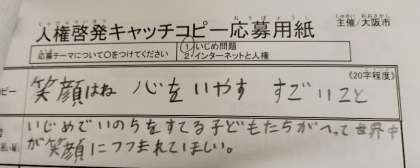 人権啓発キャッチコピー応募用紙
主催/大阪市
応募テーマについて○をつけてください
1 いじめ問題
2 インターネットと人権
(20字程度)
ピー
笑顔はね 心をいやす すごいこと
いじめでいのちをすてる子どもたちがへって世界中
が笑顔につつまれてほしい。